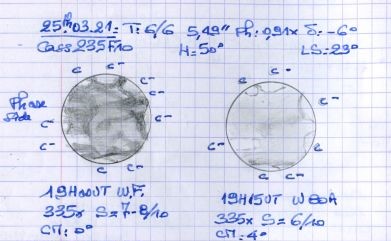 25th.03.21: T: 6/6 5,49" Ph: 0,91x δ: -6°
Cass 235 F10 H=50° LS=23°
c c- c c-
c- c- c
Phase side
c- c- c- c-
c c-
c c- c c-
19H00UT W.F. 19H15UT W80A
335x S=7-8/10 335x S=6/10
CM: 0° CM: 4°